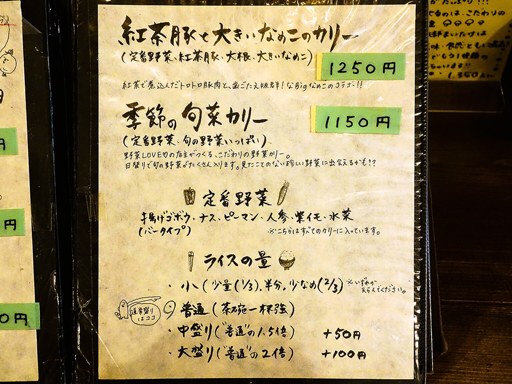 紅茶豚と大きいなめこのカリー
(定番野菜、紅茶豚、大根、大きいなめこ)
1250円
紅茶で煮込んだトロトロ豚肉と、歯ごたえ抜群!なBigなめこのコラボ!!
季節の旬菜カリー
1150円
(定番野菜、旬の野菜いっぱい)
野菜LOVEな店主がつくる、こだわりの野菜カリー。
日替りで旬の野菜がたくさん入ります。見たことのない珍しい野菜に出会えるかも!?
定番野菜
揚げゴボウ・ナス・ピーマン・人参・紫イモ・水菜
(バータイプ)
※こちらはすべてのカリーに入っています。
ライスの量
・小(少量(1/3)、半分、少なめ(2/3)
※いずれかえらんでください。
普通(茶碗一杯強)
通常盛りはココ
・中盛り("普通"の1.5倍) +50円
・大盛り("普通"の2倍) +100円
円
円
0円